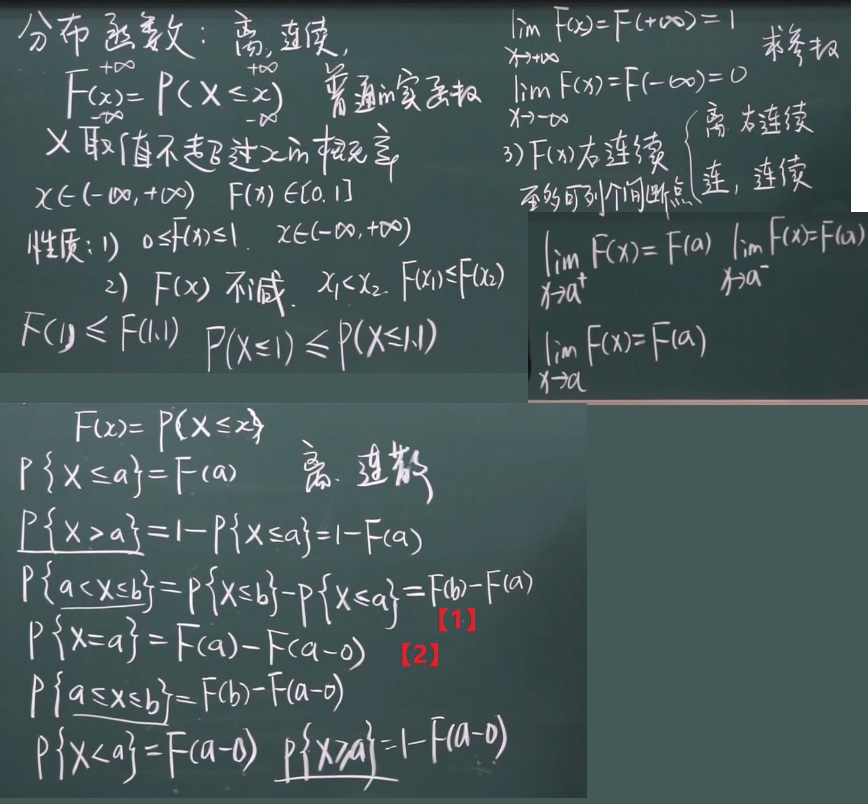 分布函数：离,连续,
F(x)=P(X≤x) 普通的实函数
+∞ +∞
-∞ -∞
X取值不超过x的概率
x∈(-∞,+∞) F(x)∈[0,1]
性质:1) 0≤F(x)≤1. x∈(-∞,+∞)
2) F(x) 不减. x₁<x₂. F(x₁)≤F(x₂)
F(1)≤F(1.1) P(X≤1)≤P(X≤1.1)
lim F(x)=F(+∞)=1
x→+∞
求参数
lim F(x)=F(-∞)=0
x→-∞
3) F(x)右连续
至多可列个间断点
离 右连续
连, 连续
lim F(x)=F(a) lim F(x)=F(a)
x→a⁺ x→a⁻
lim F(x)=F(a)
x→a
F(x)=P{X≤x}
P{X≤a}=F(a) 离. 连散
P{X>a}=1-P{X≤a}=1-F(a)
P{a<X≤b}=P{X≤b}-P{X≤a}=F(b)-F(a)
【1】
P{X=a}=F(a)-F(a-0) 【2】
P{a≤X≤b}=F(b)-F(a-0)
P{X<a}=F(a-0) P{X≥a}=1-F(a-0)